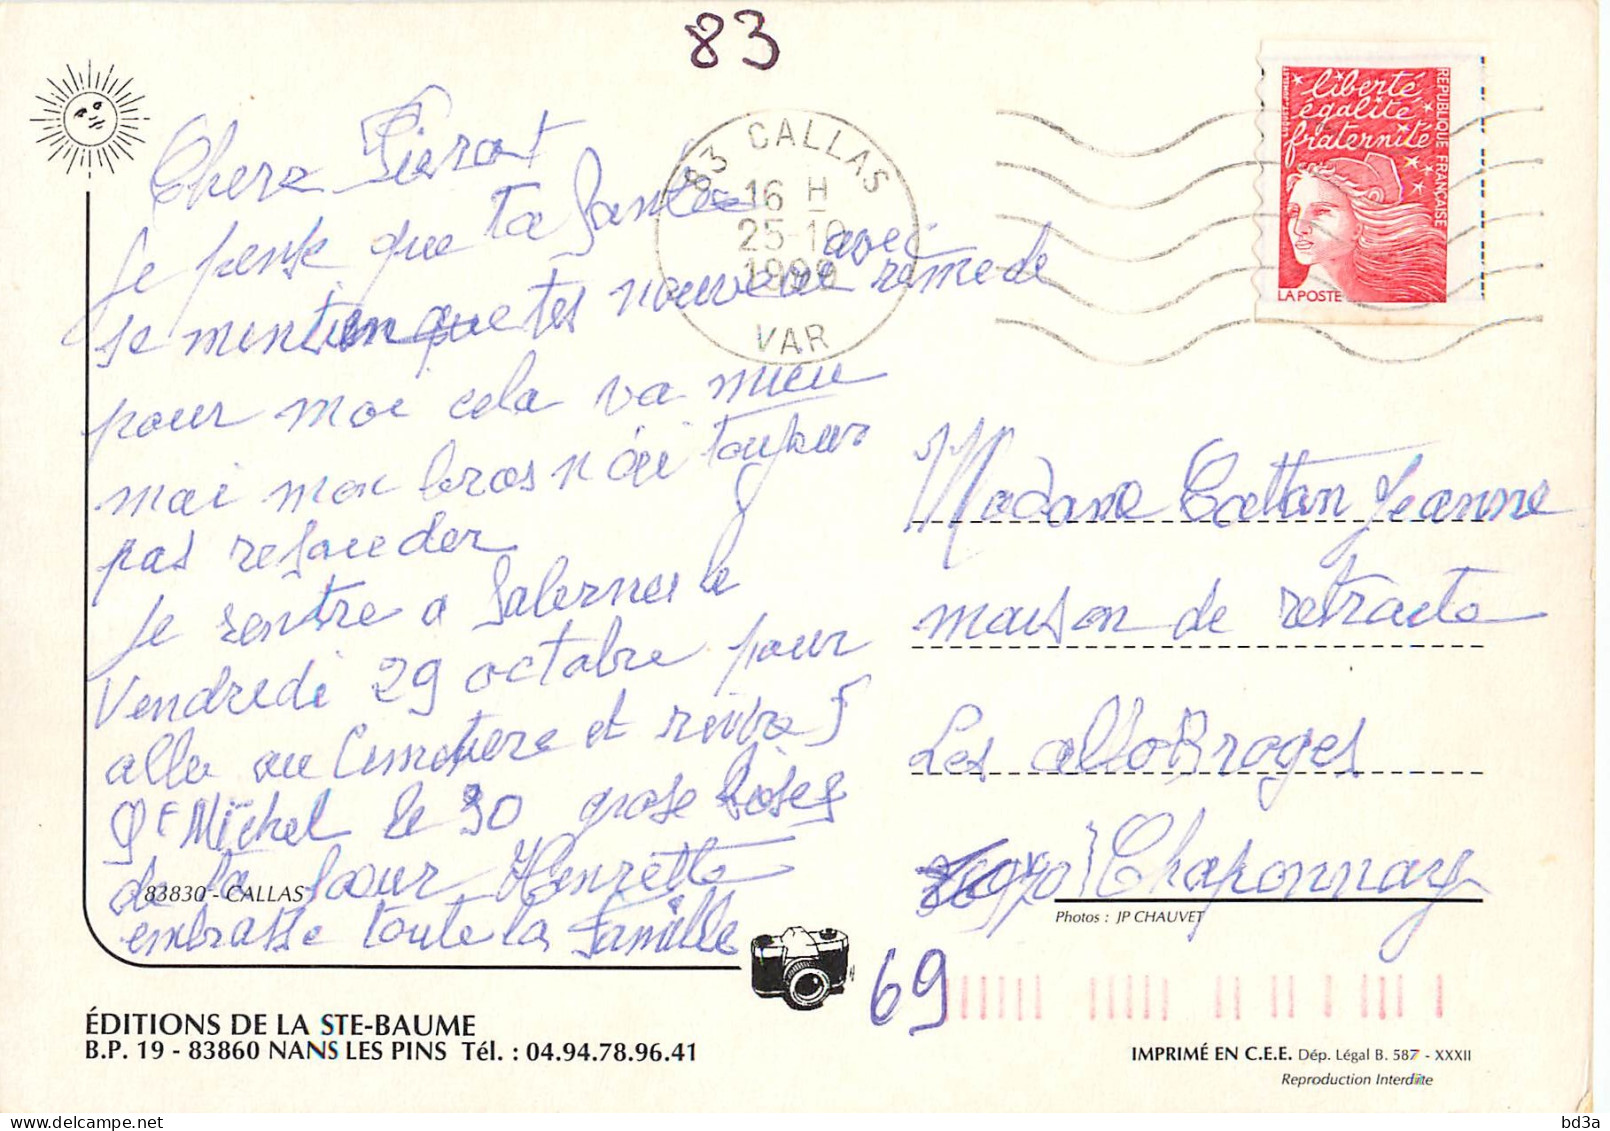 83
Chere
Je pense que ta Santée
se mentien que tes nouveau avec remede
pour moi cela va mieu
mai mon bras n'ai toujour
pas resouder
Je rentre a Salernes le
Vendredi 29 octobre pour
alle au Cimetiere et
St Michel le 30 grose bises
de ta soeur Henrette
embrasse toute la famille
83830 - CALLAS
83 CALLAS
16 H
25-10
1999
VAR
liberté
égalité
fraternité
RÉPUBLIQUE FRANÇAISE
LA POSTE
Madame Cattan Jeanne
maison de retraite
Les alloBroges
Chaponnay
Photos : JP CHAUVET
69
ÉDITIONS DE LA STE-BAUME
B.P. 19 - 83860 NANS LES PINS Tél. : 04.94.78.96.41
IMPRIMÉ EN C.E.E. Dép. Légal B. 587 - XXXII
Reproduction Interdite
bd3a